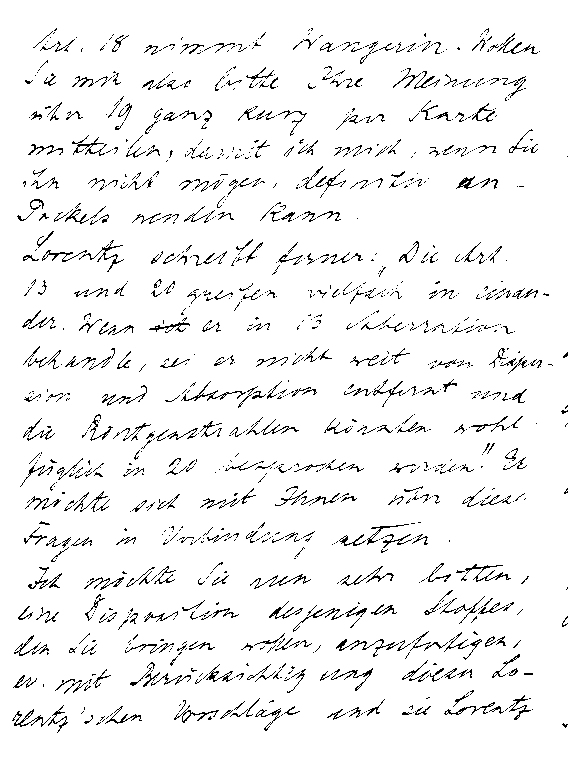 Art. 18 nimmt Wangerin. Wollen
Sie mir also bitte Ihre Meinung
über 19 ganz kurz per Karte
mittheilen, damit ich mich, wenn Sie
ihn nicht mögen, definitiv an
Pockels wenden kann.
Lorentz schreibt ferner: „Die Art.
13 und 20 greifen vielfach in einan-
der. Wenn er in 13 Aberration
behandle, sei er nicht weit von Disper-
sion und Absorption entfernt und
die Röntgenstrahlen könnten wohl
füglich in 20 besprochen werden." Er
möchte sich mit Ihnen über diese
Fragen in Verbindung setzen.
Ich möchte Sie nun sehr bitten,
eine Disposition desjenigen Stoffes,
den Sie bringen wollen, anzufertigen,
ev. mit Berücksichtigung dieser Lo-
rentz'schen Vorschläge und sie Lorentz